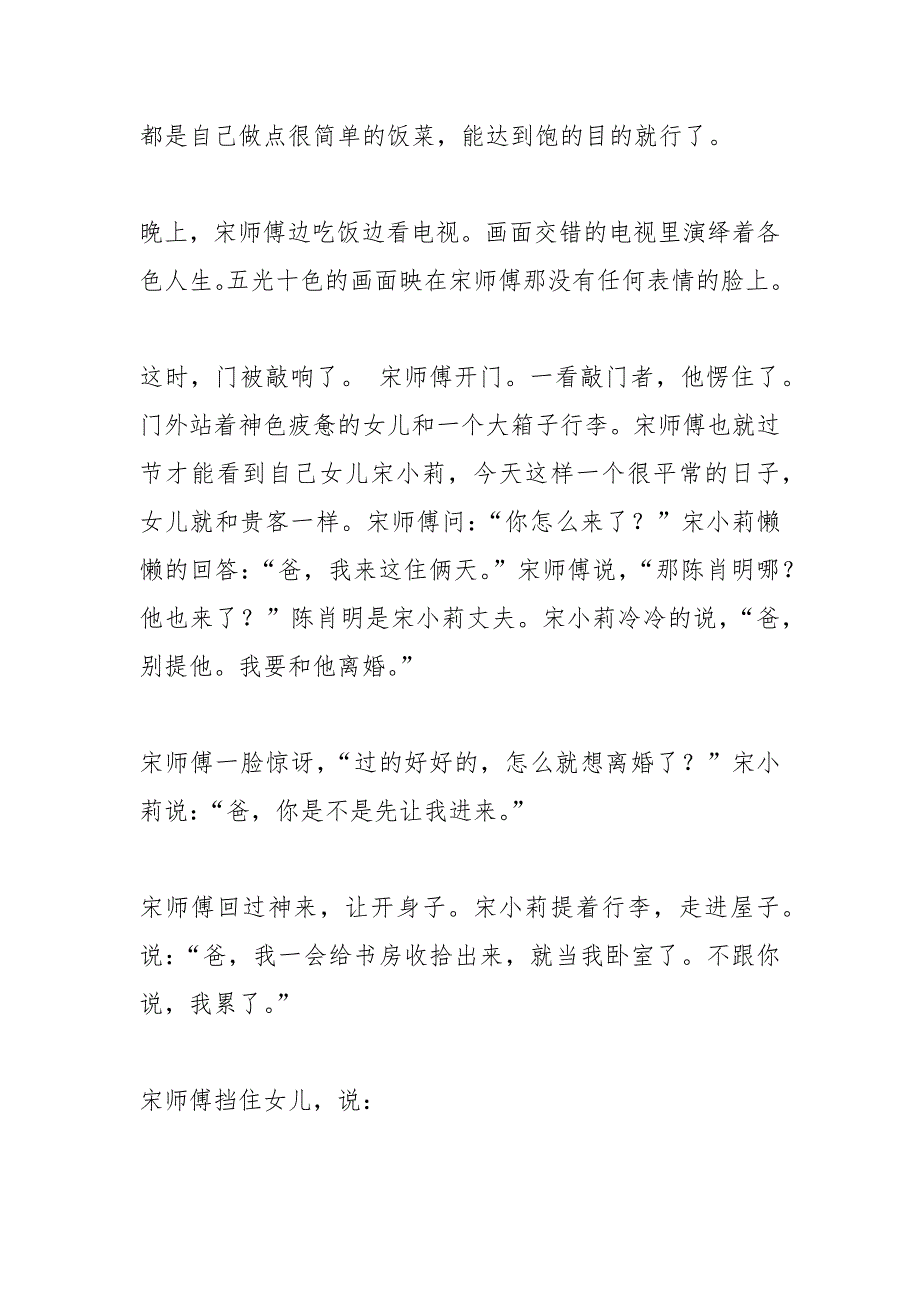 都是自己做点很简单的饭菜，能达到饱的目的就行了。
晚上，宋师傅边吃饭边看电视。画面交错的电视里演绎着各
色人生。五光十色的画面映在宋师傅那没有任何表情的脸上。
这时，门被敲响了。 宋师傅开门。一看敲门者，他愣住了。
门外站着神色疲惫的女儿和一个大箱子行李。宋师傅也就过
节才能看到自己女儿宋小莉，今天这样一个很平常的日子，
女儿就和贵客一样。宋师傅问：“你怎么来了？”宋小莉懒
懒的回答：“爸，我来这住俩天。”宋师傅说，“那陈肖明哪？
他也来了？”陈肖明是宋小莉丈夫。宋小莉冷冷的说，“爸，
别提他。我要和他离婚。”
宋师傅一脸惊讶，“过的好好的，怎么就想离婚了？”宋小
莉说：“爸，你是不是先让我进来。”
宋师傅回过神来，让开身子。宋小莉提着行李，走进屋子。
说：“爸，我一会给书房收拾出来，就当我卧室了。不跟你
说，我累了。”
宋师傅挡住女儿，说：